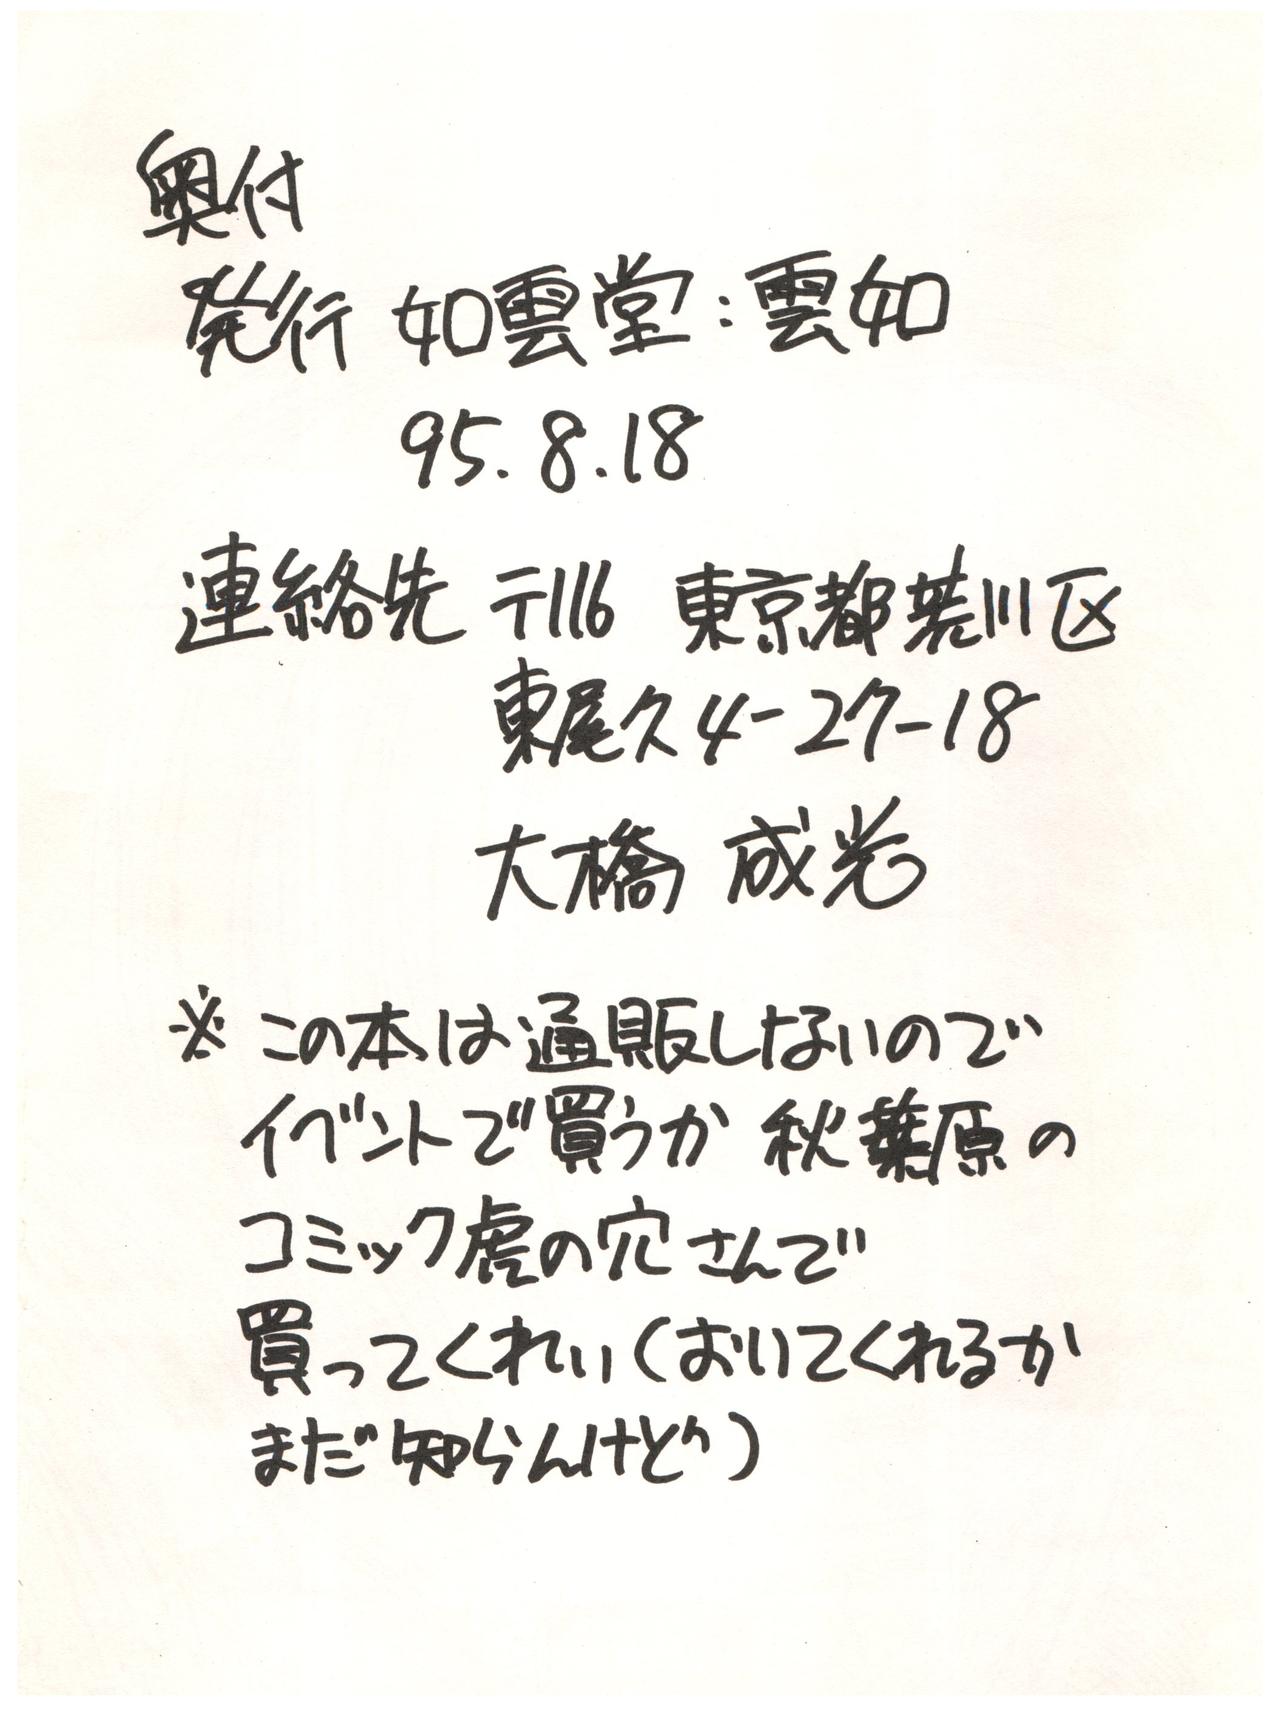 奥付
発行 如雲堂:雲如
95.8.18
連絡先 〒116 東京都荒川区
東尾久4-27-18
大橋 成光
※この本は通販しないので
イベントで買うか 秋葉原の
コミック虎の穴さんで
買ってくれぃ(おいてくれるか
まだ知らんけど)